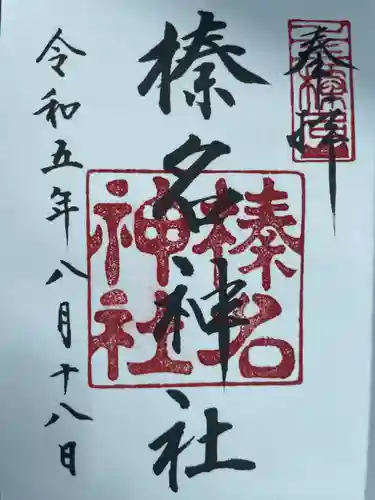 奉拝
榛名神社
榛名神社
令和五年八月十八日